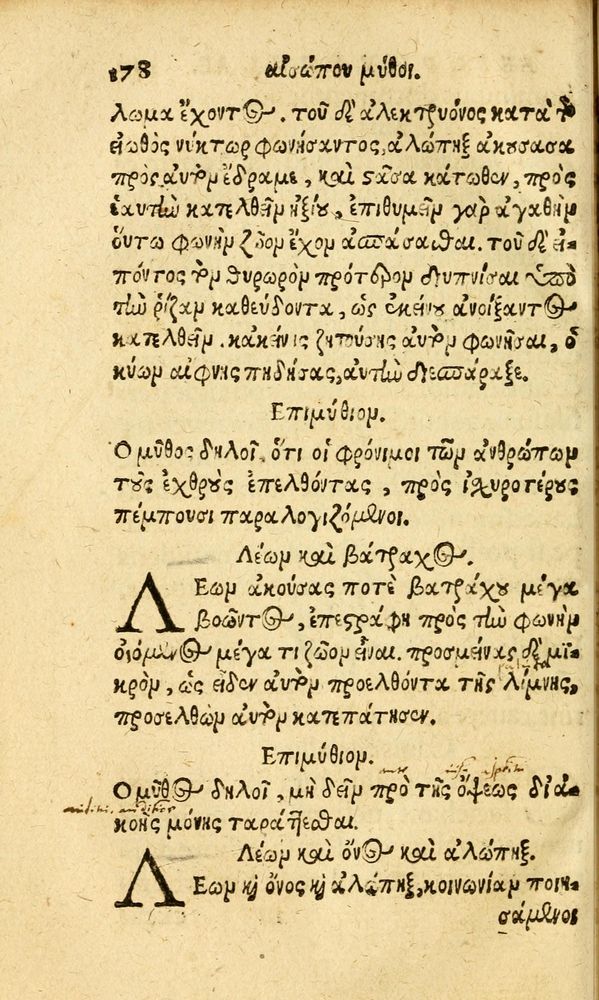 178 αἰσώπου μῦθοι.
λωμα ἔχοντος. τοῦ δὲ ἀλεκτρυόνος κατὰ τὸ
εἰωθὸς νύκτωρ φωνήσαντος, ἀλώπηξ ἀκούσασα
πρὸς αὐτὸν ἔδραμε, καὶ στᾶσα κάτωθεν, πρὸς
ἑαυτὴν κατελθεῖν ἠξίου, ἐπιθυμεῖν γὰρ ἀγαθὴν
οὕτω φωνὴν ζῶον ἔχον ἀσπάσασθαι. τοῦ δὲ εἰ-
πόντος τὸν θυρωρὸν πρότερον διυπνίσαι ὑπὸ
τὴν ῥίζαν καθεύδοντα, ὡς ἐκείνου ἀνοίξαντος
κατελθεῖν. κἀκείνης ζητούσης αὐτὸν φωνῆσαι, ὁ
κύων αἴφνης πηδήσας, αὐτὴν διεσπάραξε.
Επιμύθιον.
Ὁ μῦθος δηλοῖ, ὅτι οἱ φρόνιμοι τῶν ἀνθρώπων
τοὺς ἐχθροὺς ἐπελθόντας, πρὸς ἰσχυροτέρους
πέμπουσι παραλογιζόμενοι.
Λέων καὶ βάτραχος.
ΛΕων ἀκούσας ποτὲ βατράχου μέγα
βοῶντος, ἐπεστράφη πρὸς τὴν φωνὴν
οἰόμενος μέγα τι ζῶον εἶναι. προσμείνας δὲ μι-
κρὸν, ὡς εἶδεν αὐτὸν προελθόντα τῆς λίμνης,
προσελθὼν αὐτὸν κατεπάτησεν.
Επιμύθιον.
Ὁ μῦθος δηλοῖ, μὴ δεῖν πρὸ τῆς ὄψεως δι᾽ ἀ-
κοῆς μόνης ταράττεσθαι.
Λέων καὶ ὄνος καὶ ἀλώπηξ.
ΛΕων καὶ ὄνος καὶ ἀλώπηξ, κοινωνίαν ποιη-
σάμενοι